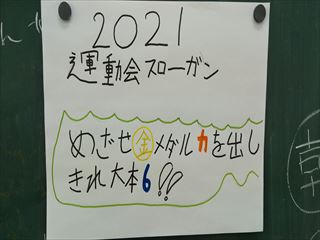 2021
運動会スローガン
めざせ金メダル力を出し
きれ大本6!!